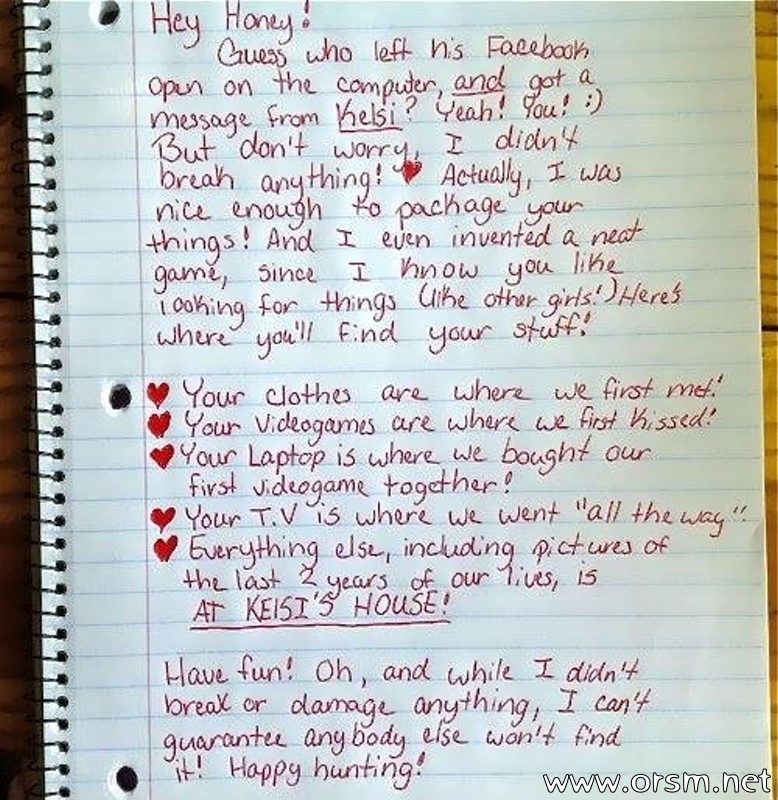 Hey Honey!
Guess who left his Facebook
open on the computer, and got a
message from Kelsi? Yeah! You! :)
But don't worry, I didn't
break anything! ♥ Actually, I was
nice enough to package your
things! And I even invented a neat
game, since I know you like
looking for things (like other girls!) Here's
where you'll find your stuff!
♥ Your clothes are where we first met!
♥ Your videogames are where we first kissed!
♥ Your Laptop is where we bought our
first videogame together!
♥ Your T.V is where we went "all the way".
♥ Everything else, including pictures of
the last 2 years of our lives, is
AT KElSI'S HOUSE!
Have fun! Oh, and while I didn't
break or damage anything, I can't
guarantee anybody else won't find
it! Happy hunting!
www.orsm.net